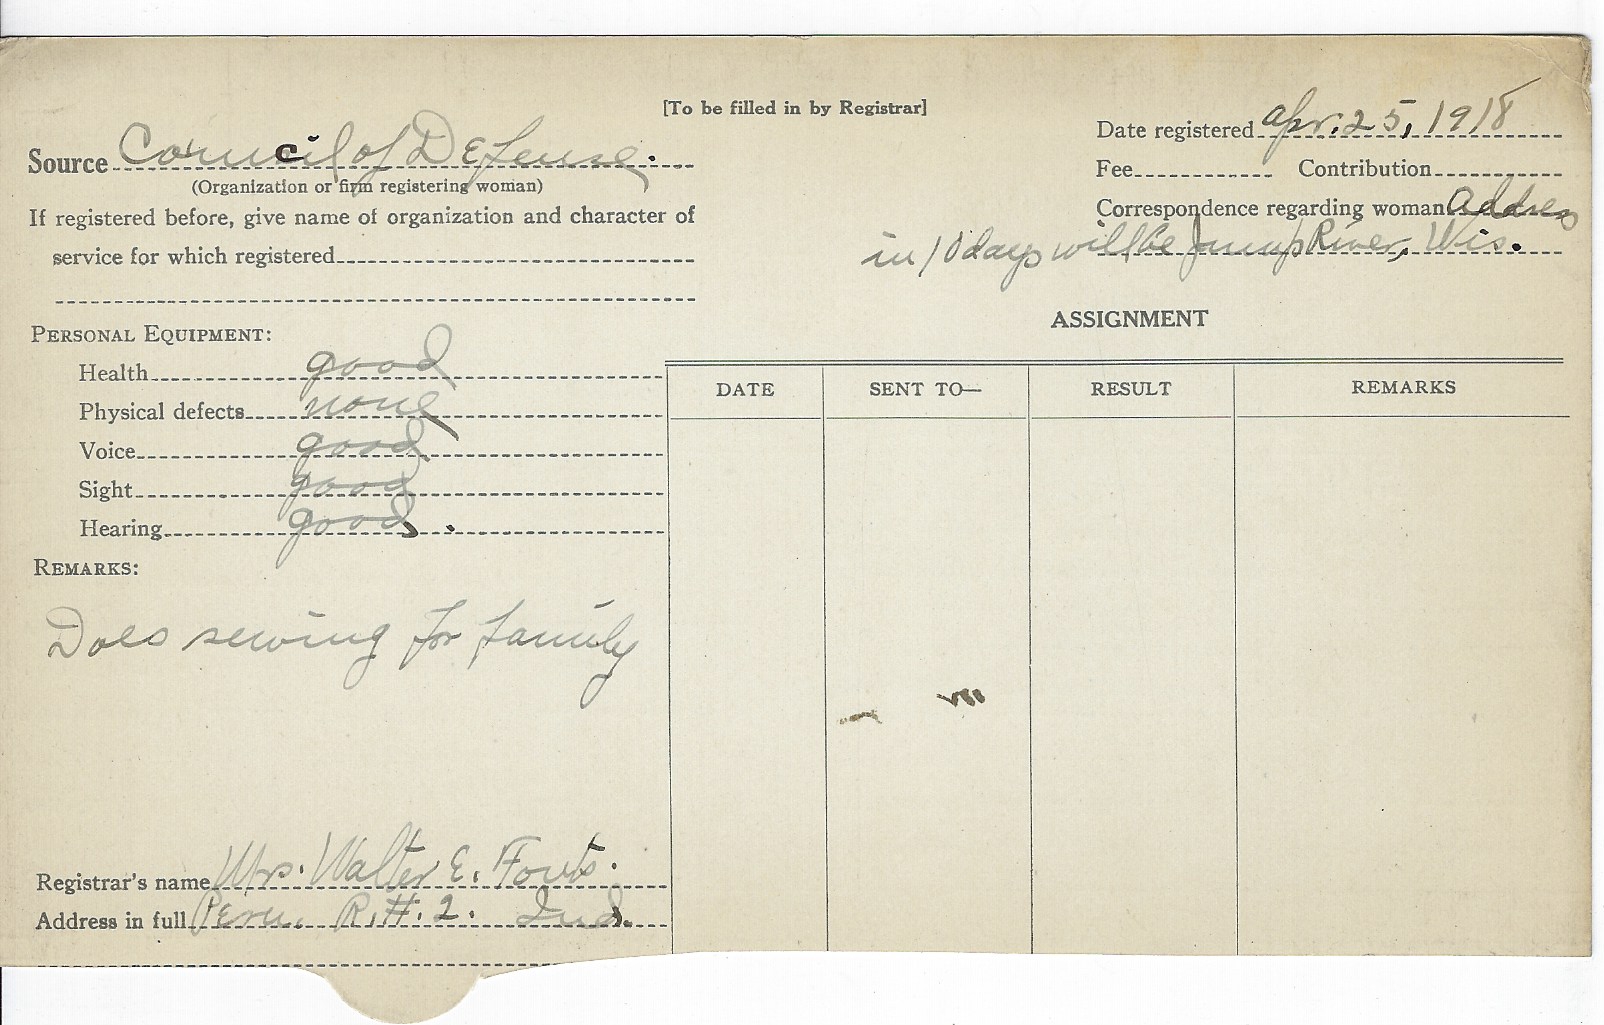 [To be filled in by Registrar]
Source Council of Defense.
(Organization or firm registering woman)
If registered before, give name of organization and character of
service for which registered
Date registered Apr. 25, 1918
Fee Contribution
Correspondence regarding woman Address
in 10 days will be Jump River, Wis.
PERSONAL EQUIPMENT:
Health good
Physical defects none
Voice good
Sight good
Hearing good.
REMARKS:
Does sewing for family
Registrar's name Mrs. Walter E. Fouts.
Address in full Peru. R.#.2. Ind.
ASSIGNMENT
DATE SENT TO— RESULT REMARKS